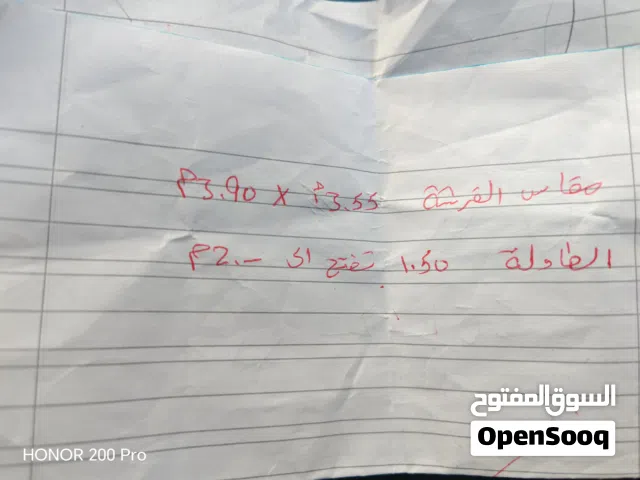 مقاس الفرشة 3.55م x 3.90م
الطاولة 1.50 تفتح الى 2.-م
السوق المفتوح
OpenSooq
HONOR 200 Pro